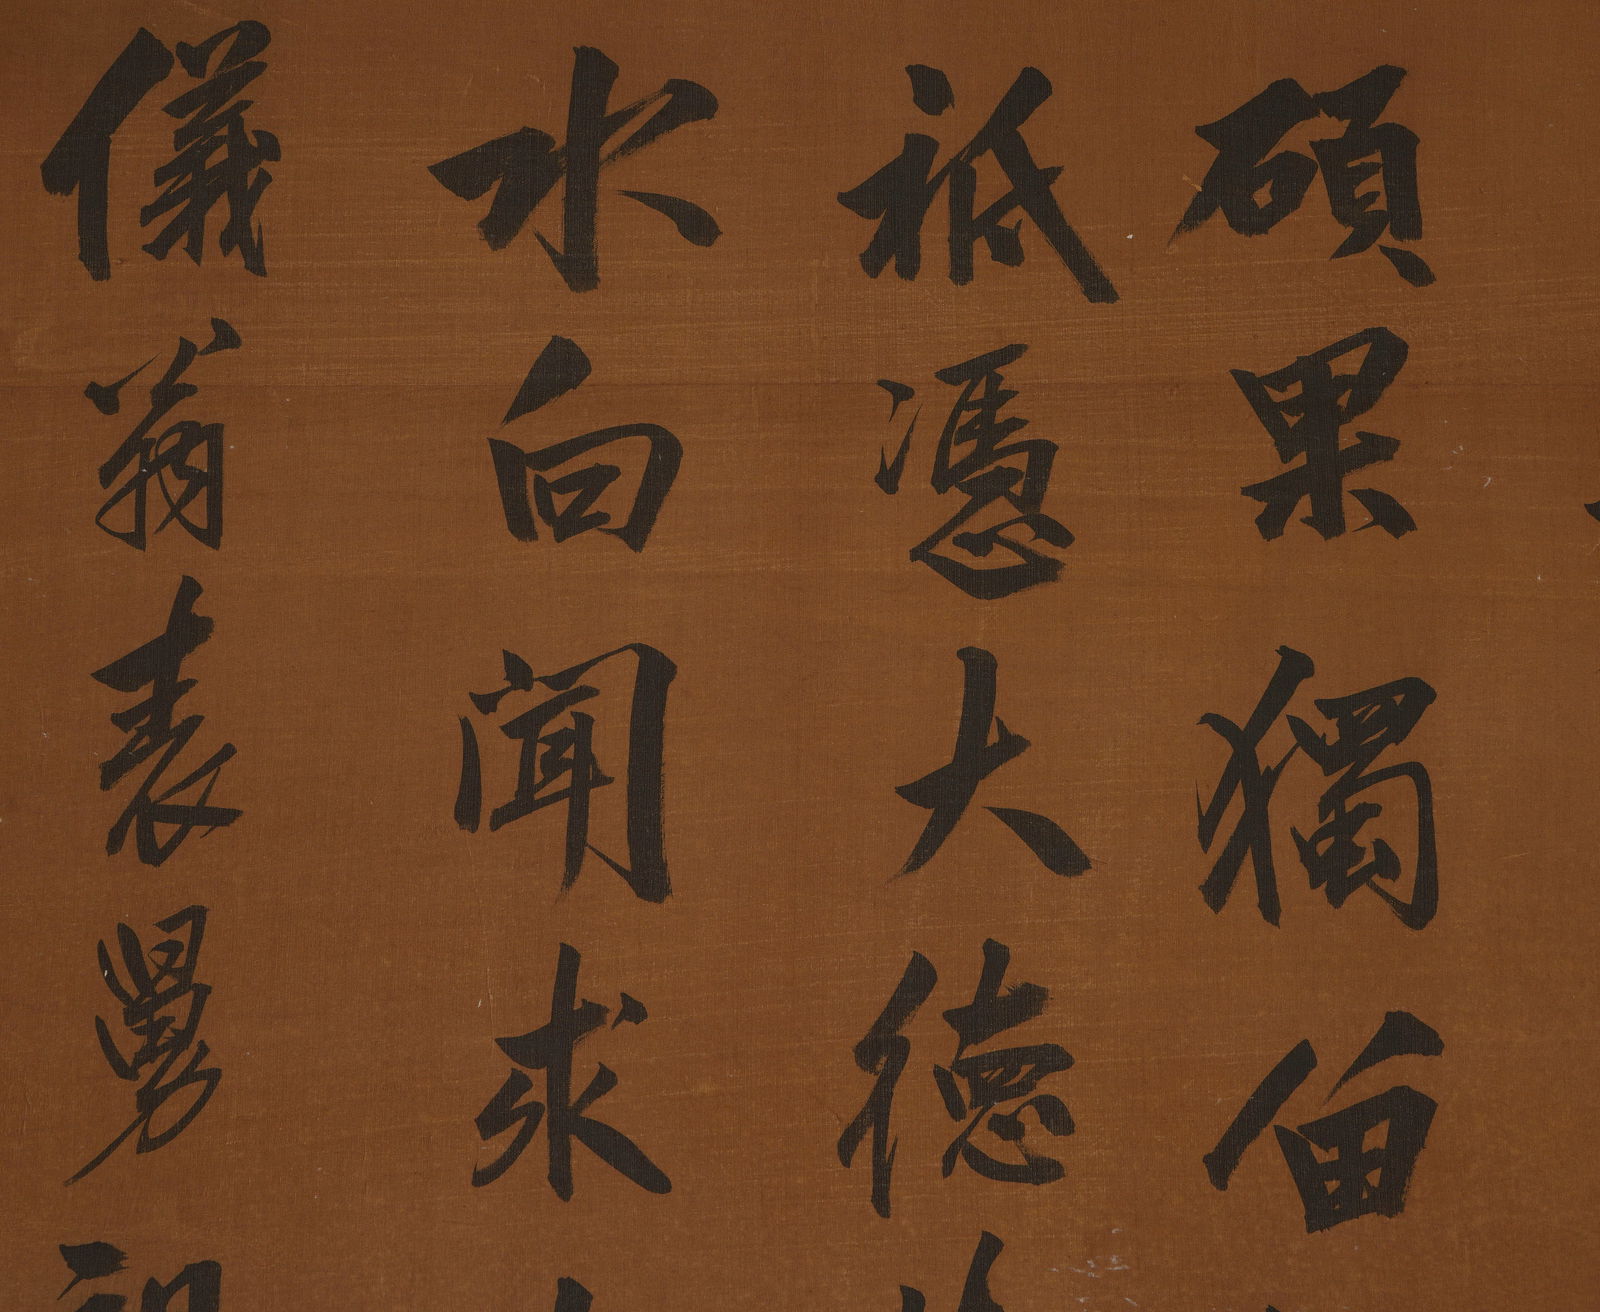 碩果獨留
祗憑大德
水向聞求
儀翁表舅